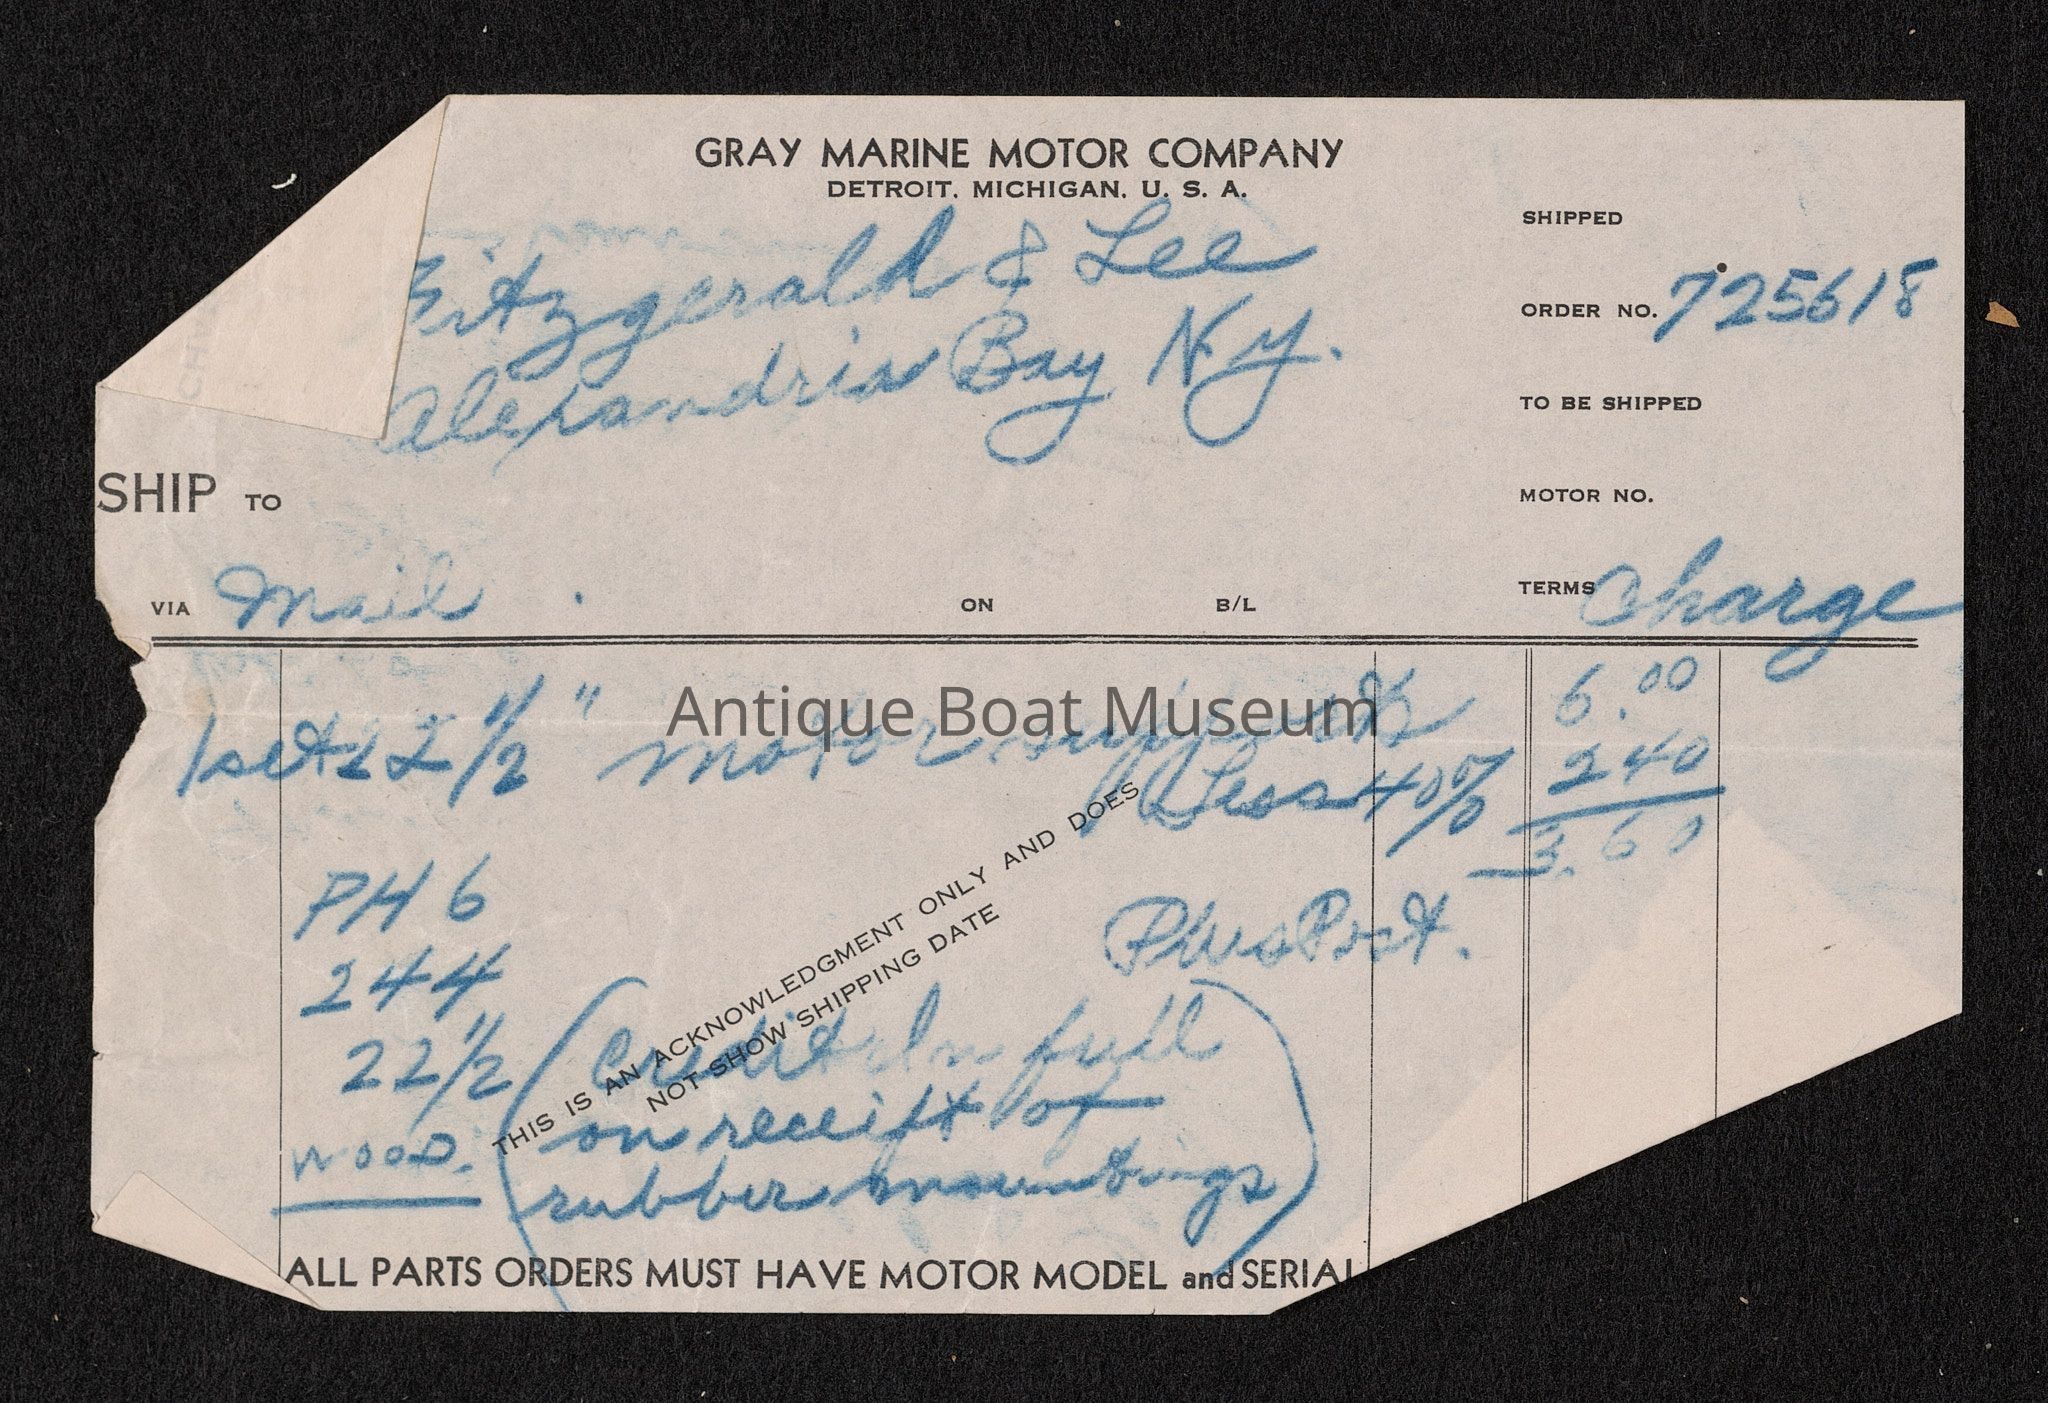 GRAY MARINE MOTOR COMPANY
DETROIT, MICHIGAN, U. S. A.
Fitzgerald & Lee
Alexandria Bay N.y.
SHIPPED
ORDER NO. 725618
TO BE SHIPPED
SHIP TO
MOTOR NO.
VIA Mail
ON
B/L
TERMS Charge
1 set 22 1/2" motor supports 6.00
Antique Boat Museum
Less 40% 240
3.60
PH 6
Plus Post.
244
22 1/2
WOOD.
(Credit in full
on receipt of
rubber mountings)
THIS IS AN ACKNOWLEDGMENT ONLY AND DOES
NOT SHOW SHIPPING DATE
ALL PARTS ORDERS MUST HAVE MOTOR MODEL and SERIAL